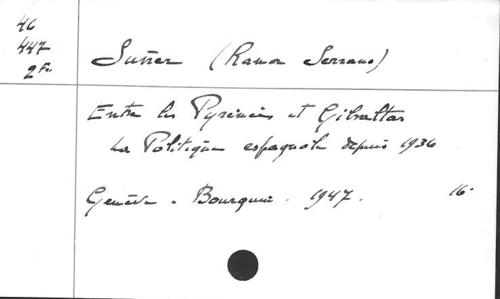 46
447
2 Fi.
Suñer (Ramon Serrano)
Entre les Pyrénées et Gibraltar
La Politique espagnole depuis 1936
Genève. Bourquin. 1947. 16°